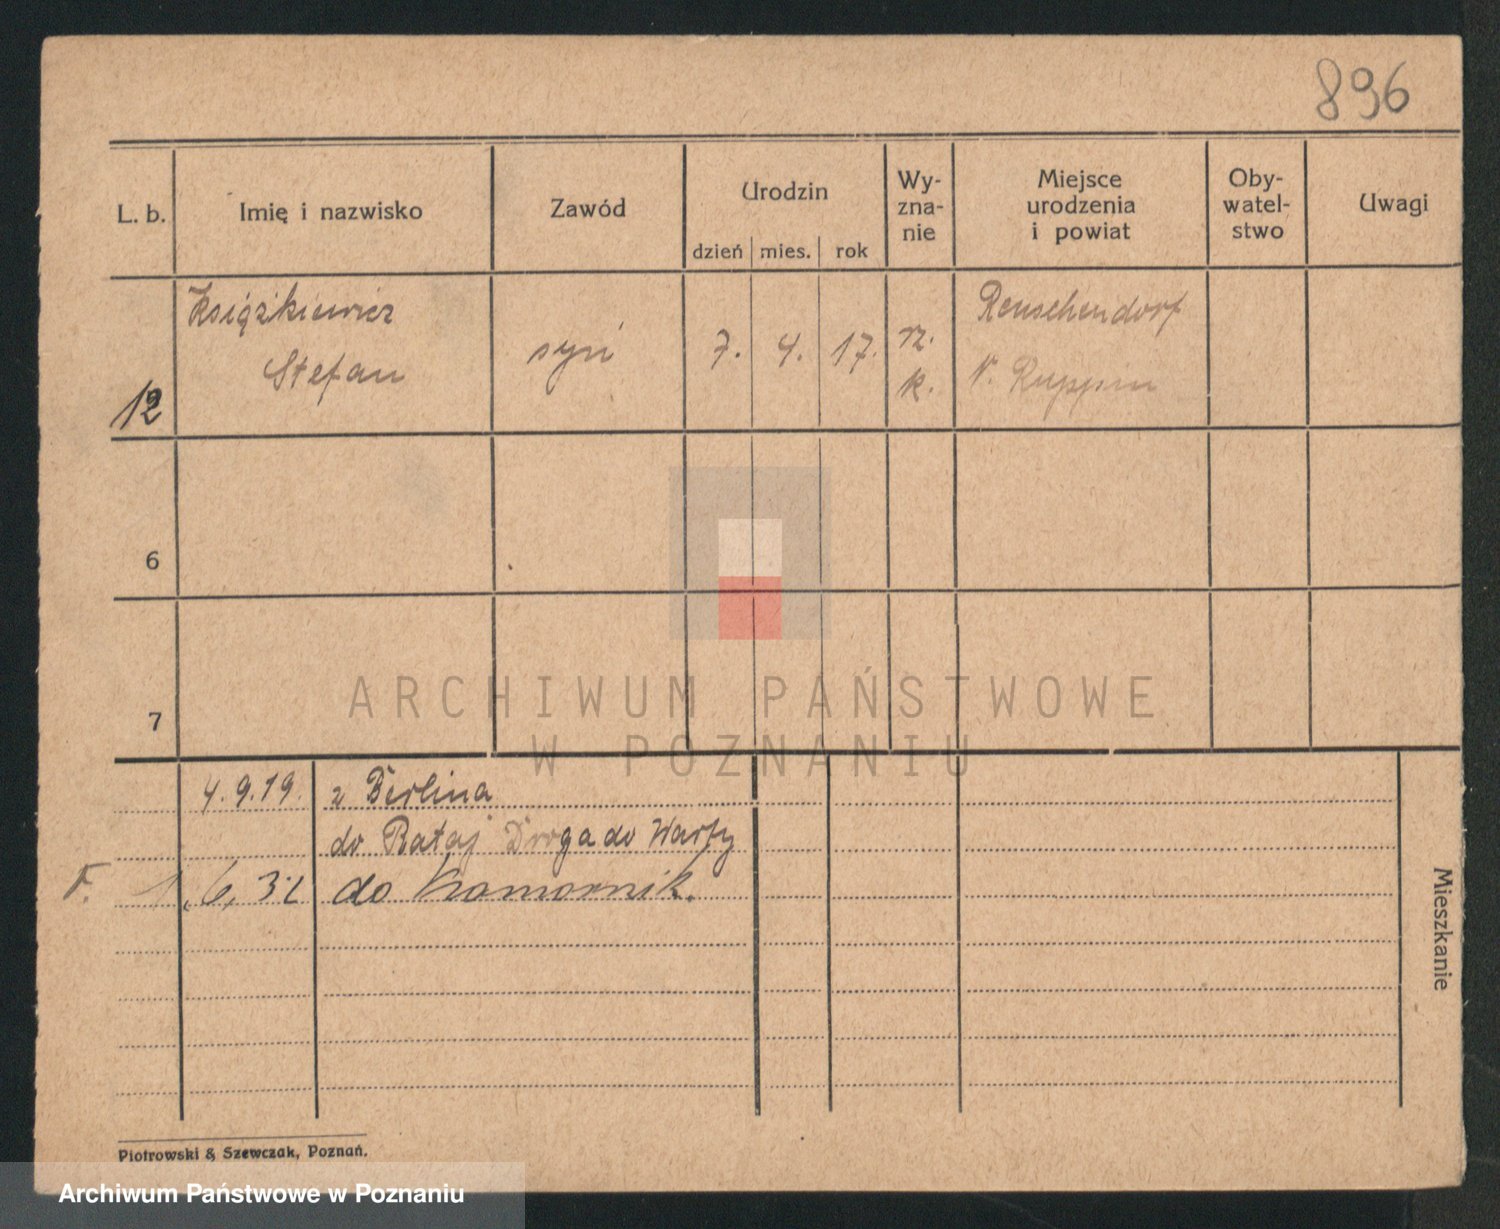 896
L. b.
Imię i nazwisko
Zawód
Urodzin
dzień mies. rok
Wy-
zna-
nie
Miejsce
urodzenia
i powiat
Oby-
watel-
stwo
Uwagi
Książkiewicz
Stefan
12
syn
7. 4. 17.
rz.
k.
Reuschendorf
N. Ruppin
6
7
ARCHIWUM PAŃSTWOWE
W POZNANIU
4.9.19. z Berlina
do Rataj Droga do Warty
F. 1.6.32 do Komornik.
Mieszkanie
Piotrowski & Szewczak, Poznań.
Archiwum Państwowe w Poznaniu